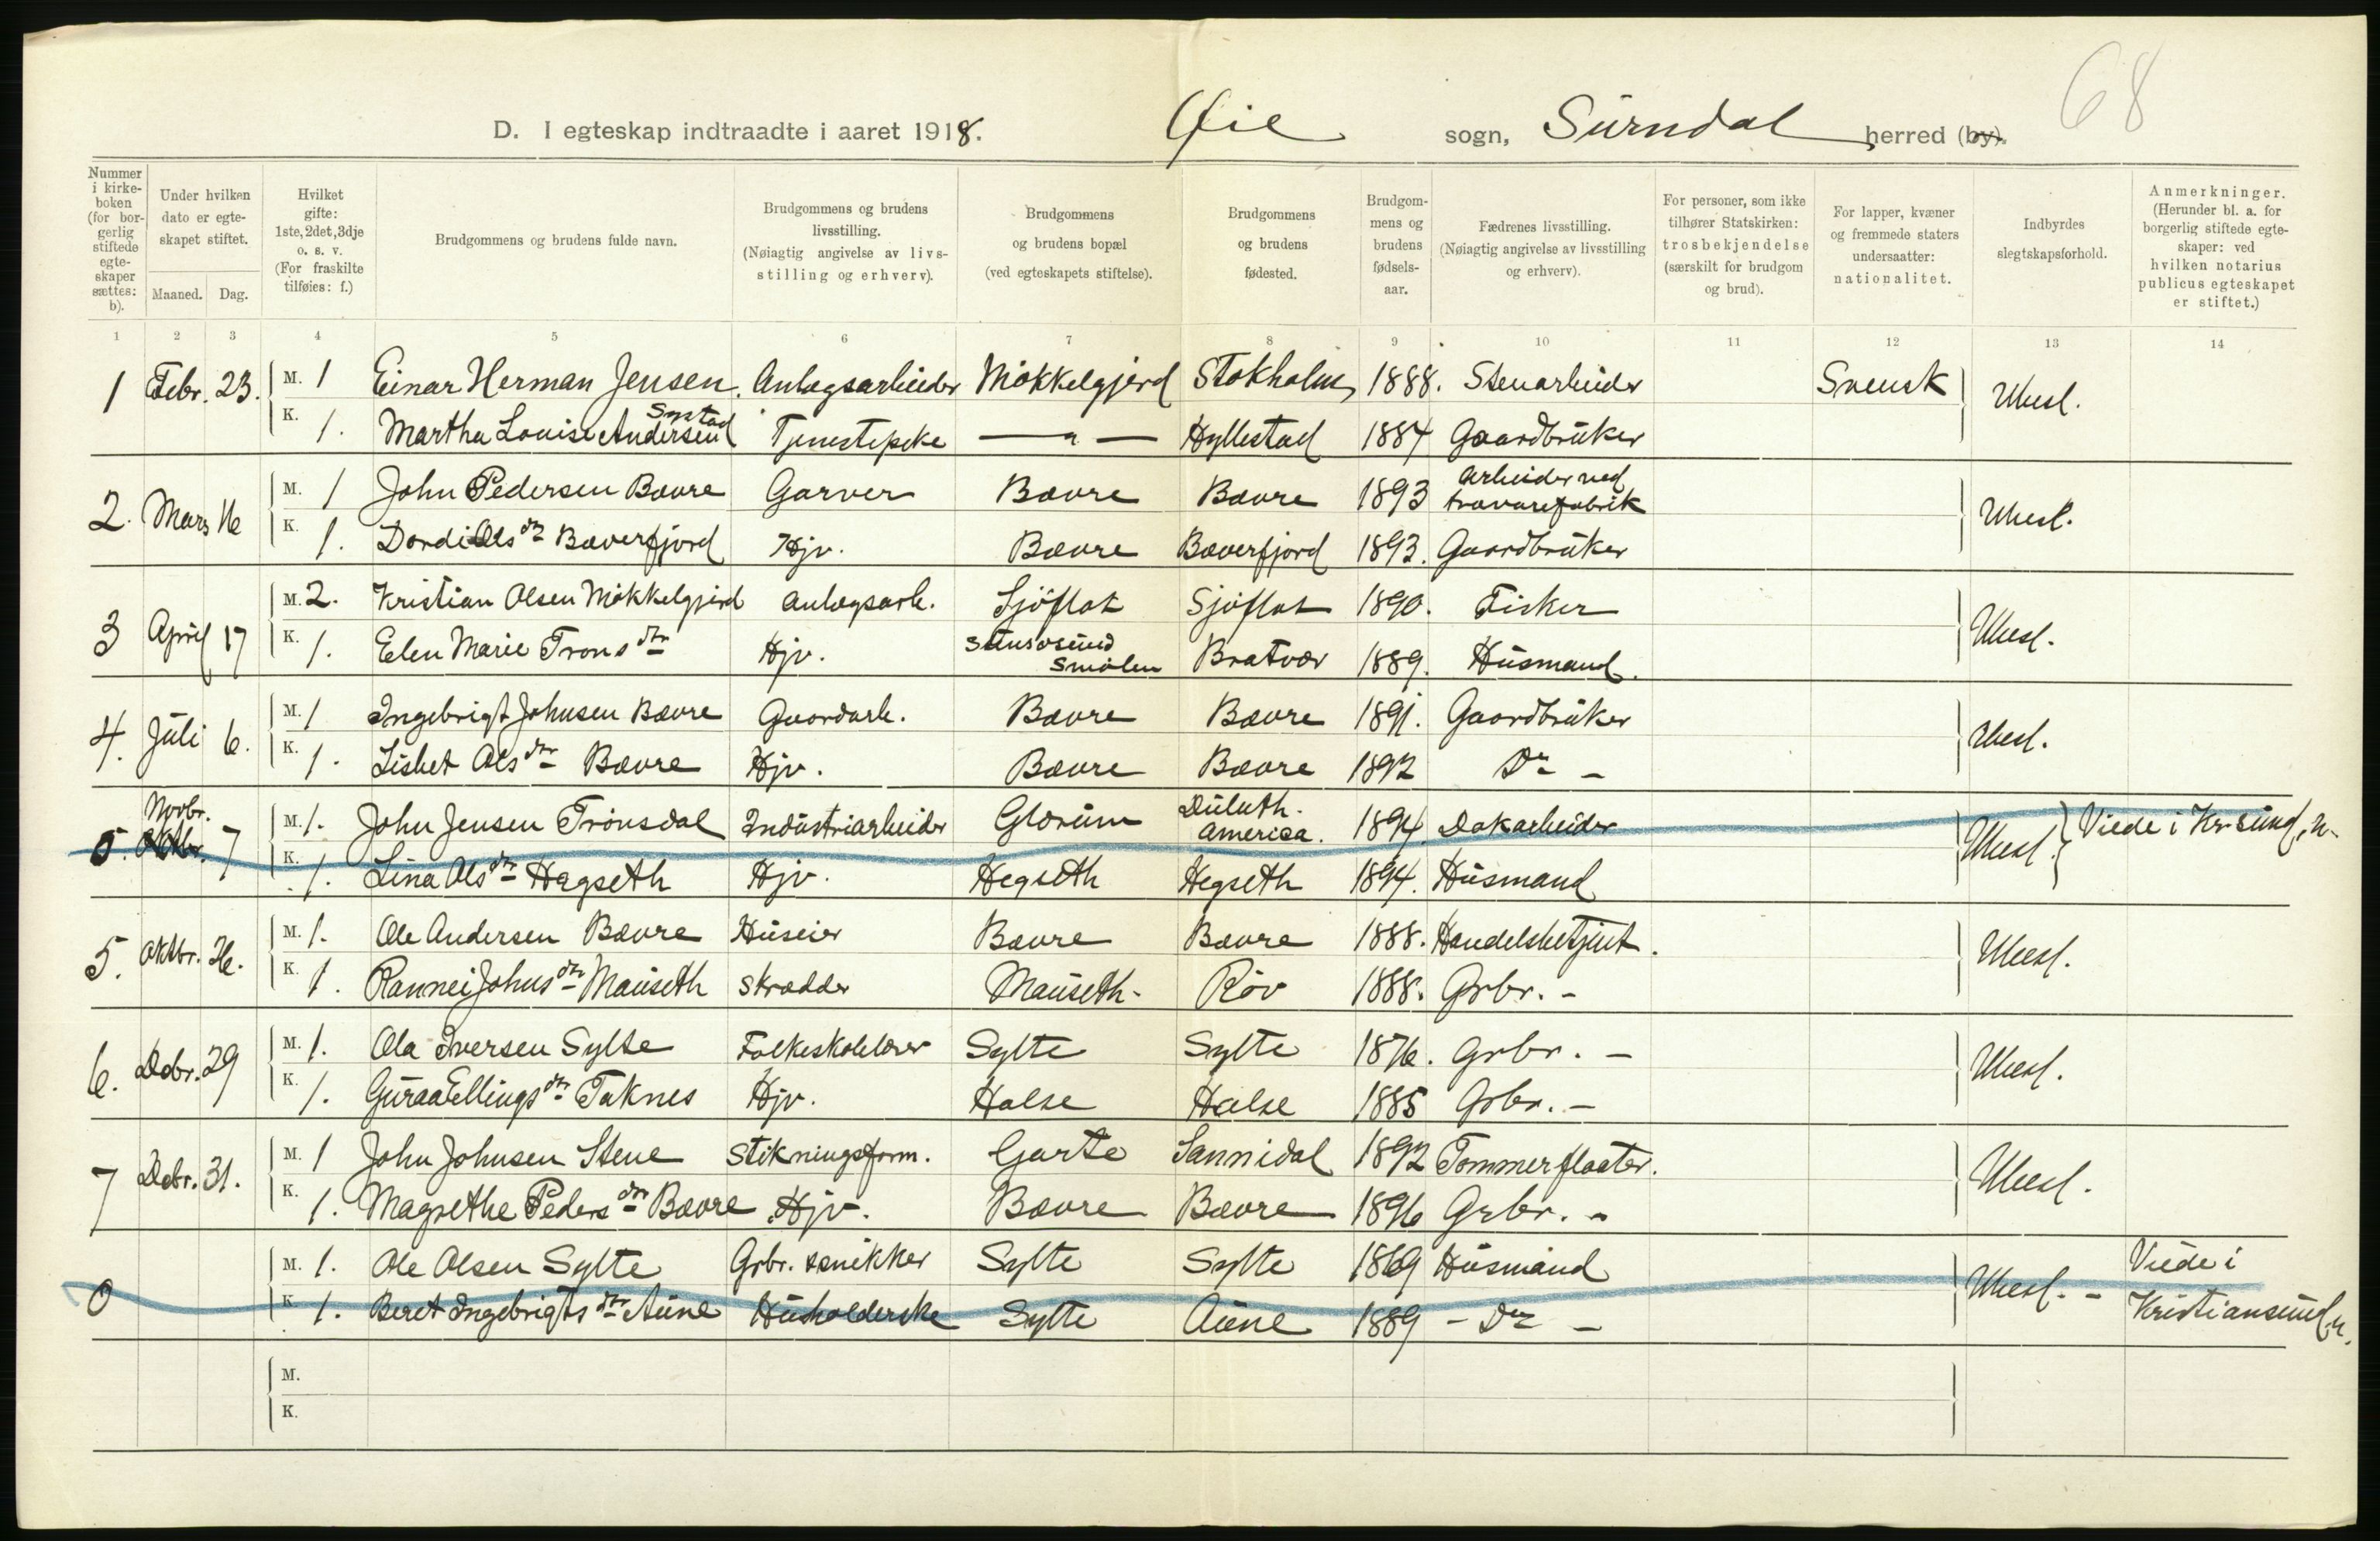 68
D. I egteskap indtraadte i aaret 1918. Øie sogn, Surndal herred (by).
Nummer i kirkeboken (for borgerlig stiftede egteskaper sættes: b).
Under hvilken dato er egteskapet stiftet.
Maaned. Dag.
Hvilket gifte: 1ste, 2det, 3dje o. s. v. (For fraskilte tilføies: f.)
Brudgommens og brudens fulde navn.
Brudgommens og brudens livsstilling. (Nøiagtig angivelse av livsstilling og erhverv).
Brudgommens og brudens bopæl (ved egteskapets stiftelse).
Brudgommens og brudens fødested.
Brudgommens og brudens fødselsaar.
Fædrenes livsstilling. (Nøiagtig angivelse av livsstilling og erhverv).
For personer, som ikke tilhører Statskirken: trosbekjendelse (særskilt for brudgom og brud).
For lapper, kvæner og fremmede staters undersaatter: nationalitet.
Indbyrdes slegtskapsforhold.
Anmerkninger. (Herunder bl. a. for borgerlig stiftede egteskaper: ved hvilken notarius publicus egteskapet er stiftet.)
1 2 3 4 5 6 7 8 9 10 11 12 13 14
1 Febr. 23. M. 1 Einar Herman Jensen. Anlegsarbeider Mökkelgjerd Stokholm 1888. Stenarbeider Svensk Ubesl.
K. 1. Martha Louise Andersen Systad Tjenestepike — " — Hyllestad 1884 Gaardbruker
2. Mars 16 M. 1 John Pedersen Bævre Garver Bævre Bævre 1893 Arbeider ved trævarefabrik Ubesl.
K. 1. Dordi Olsdtr Bæverfjord Hjv. Bævre Bæverfjord 1893. Gaardbruker
3 April 17 M. 2. Kristian Olsen Mökkelgjerd Anlegsarb. Sjöflot Sjöflot 1890. Fisker Ubesl.
K. 1. Elen Marie Tronsdtr Hjv. Smölen Bratvær 1889. Husmand.
4. Juli 6. M. 1 Ingebrigt Johnsen Bævre Gaardarb. Bævre Bævre 1891. Gaardbruker Ubesl.
K. 1. Lisbet Olsdtr Bævre Hjv. Bævre Bævre 1892 Do –
5. Oktbr. Novbr. 7 M. 1. John Jensen Trönsdal Industriarbeider Glærum Duluth. America. 1894. Dokarbeider Ubesl. Viede i Kr.sund. n.
K. 1. Lina Olsdtr Hegseth Hjv. Hegseth Hegseth 1894. Husmand
5. Oktbr. 26. M. 1. Ole Andersen Bævre Huseier Bævre Bævre 1888. Handelsbetjent. Ubesl.
K. 1. Rannei Johnsdtr Mauseth Skrædder Mauseth Röv 1888. Grbr. –
6. Debr. 29 M. 1. Ola Iversen Sylte Folkeskolelærer Sylte Sylte 1876. Grbr. – Ubesl.
K. 1. Guraa Ellingsdtr Taknes Hjv. Halse Halse 1885 Grbr. –
7 Debr. 31. M. 1 John Johnsen Stene Stikningsform. Garte Sannidal 1892 Tømmerfløter. Ubesl.
K. 1. Magrethe Pedersdtr Bævre Hjv. Bævre Bævre 1896 Grbr. –
0 M. 1. Ole Olsen Sylte Grbr. snikker Sylte Sylte 1869 Husmand Ubesl. – Viede i Kristiansund n.
K. 1. Beret Ingebrigtsdtr Aune Husholderske Sylte Aune 1889 – Do –
M.
K.